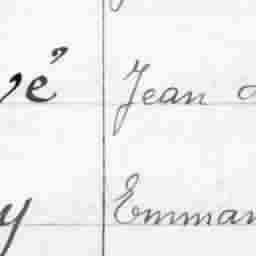 vé Jean
y Emman